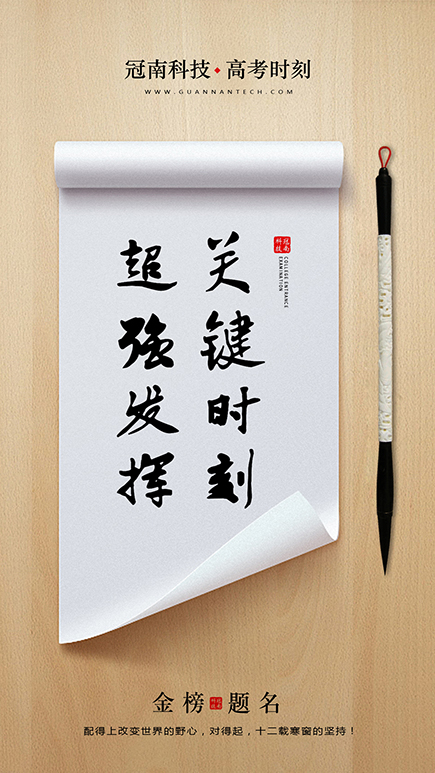 冠南科技·高考时刻
WWW.GUANNANTECH.COM
冠南科技
COLLEGE ENTRANCE
EXAMINATION
关键时刻
超强发挥
金榜 冠南科技 题名
配得上改变世界的野心，对得起，十二载寒窗的坚持！